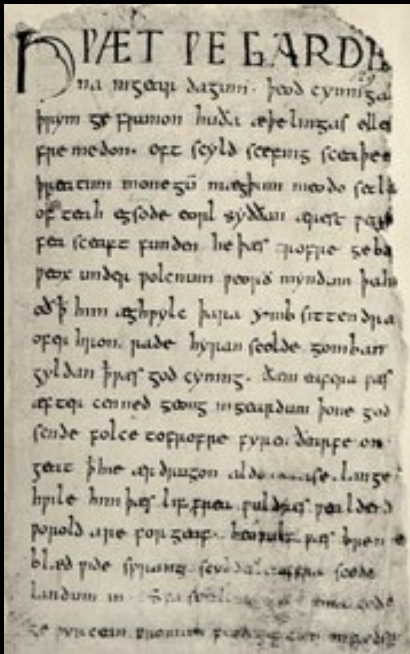 HǷÆT ǷE GARDE
na ingear dagum. þeod cyninga
þrym ge frunon huða æþelingas elle
fre medon. oft scyld scefing sceaþe
þreatum monegū mægþum meodo setla
of teah egsode eorl syððan ærest ƿar
fea sceaft funden he þæs frofre geba
ƿeox under ƿolcnum ƿeorð myndum þah
oð ꝥ him æghƿylc þara ymb sittendra
ofer hron rade hyran scolde gomban
gyldan þæt ƿæs god cyning. ðæm eafera ƿæs
æfter cenned geong ingeardum þone god
sende folce tofrofre fyren ðearfe on
geat ꝥ hie ær drugon aldor ase. lange
hƿile him þæs lif frea ƿuldres ƿealdend
ƿorold are for geaf. beoƿulf ƿæs breme
blæd ƿide sprang scyldes eafera scede
landum in